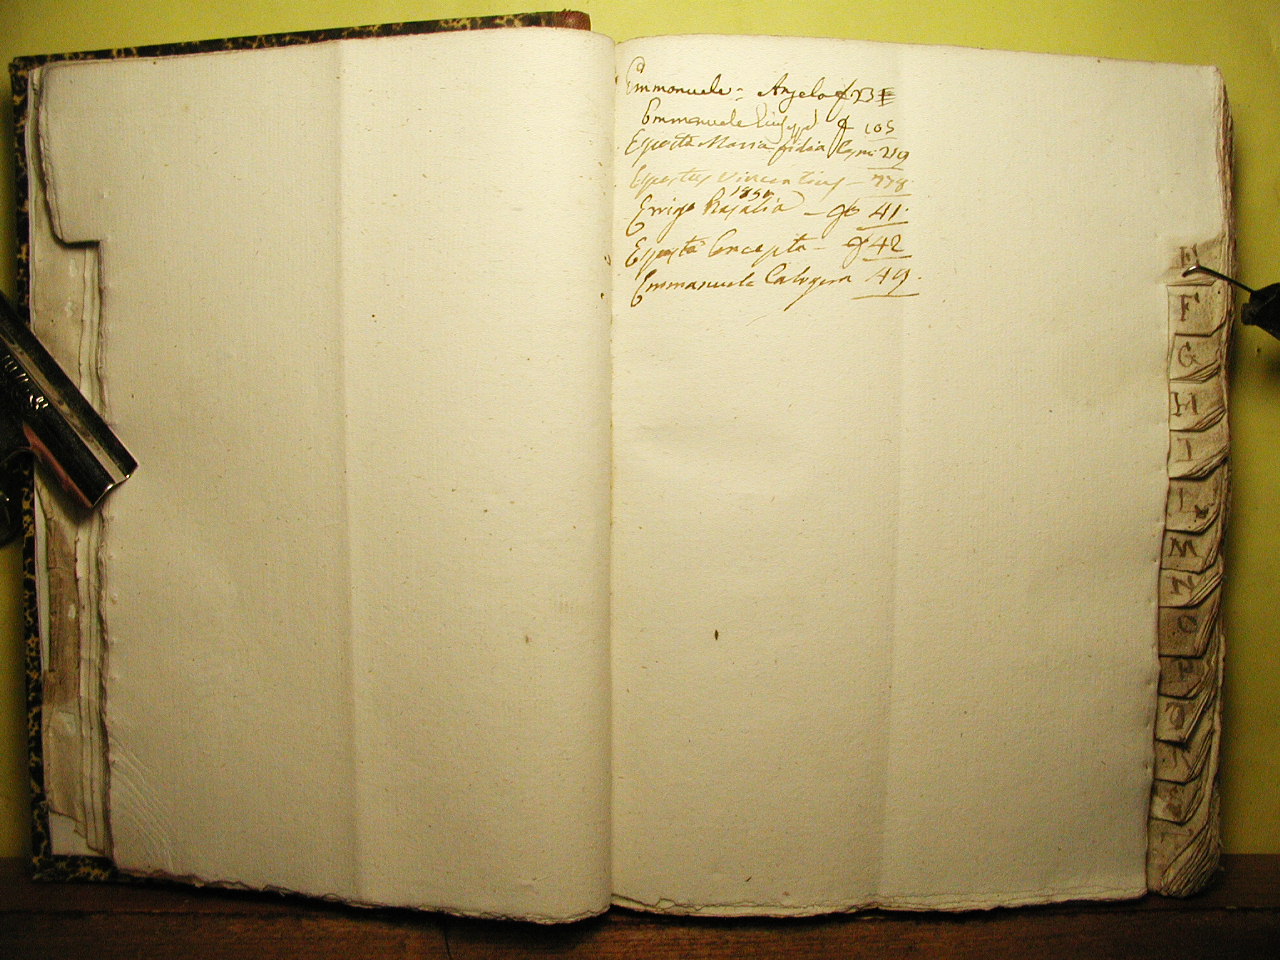 Emmanuele = Angelo f. 23
Emmanuele Giuseppe f 105
Esposta Maria fidia 219
Espostus Vincentius - 778
1850
Errigo Rosalia - f 41.
Esposta Concepta - f 42
Emmanuele Calogera 49.
E
F
G
H
I
L
M
N
O
P
Q